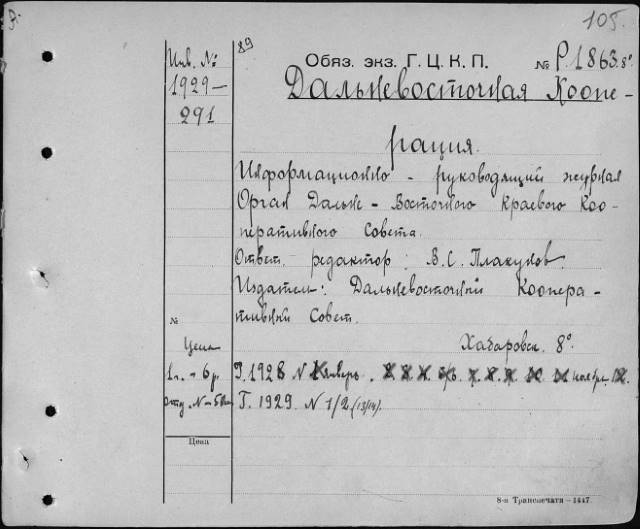 105.
89
Инв. № Обяз. экз. Г. Ц. К. П. № Р.1863. 8°.
1929 —
291
Дальневосточная Коопе-
рация.
Информационно - руководящий журнал
Орган Дальне - Восточного Краевого Коо-
перативного Совета.
Ответ. редактор : В. С. Плакунов.
Издатель: Дальневосточный Коопера-
тивный Совет.
№
Цена Хабаровск. 8°
1 г. - 6 р. Г. 1928 N январь ноябрь
отд. N - 50 Г. 1929. N 1/2 (13/14).
Цена
8-я Транспечати—1447.